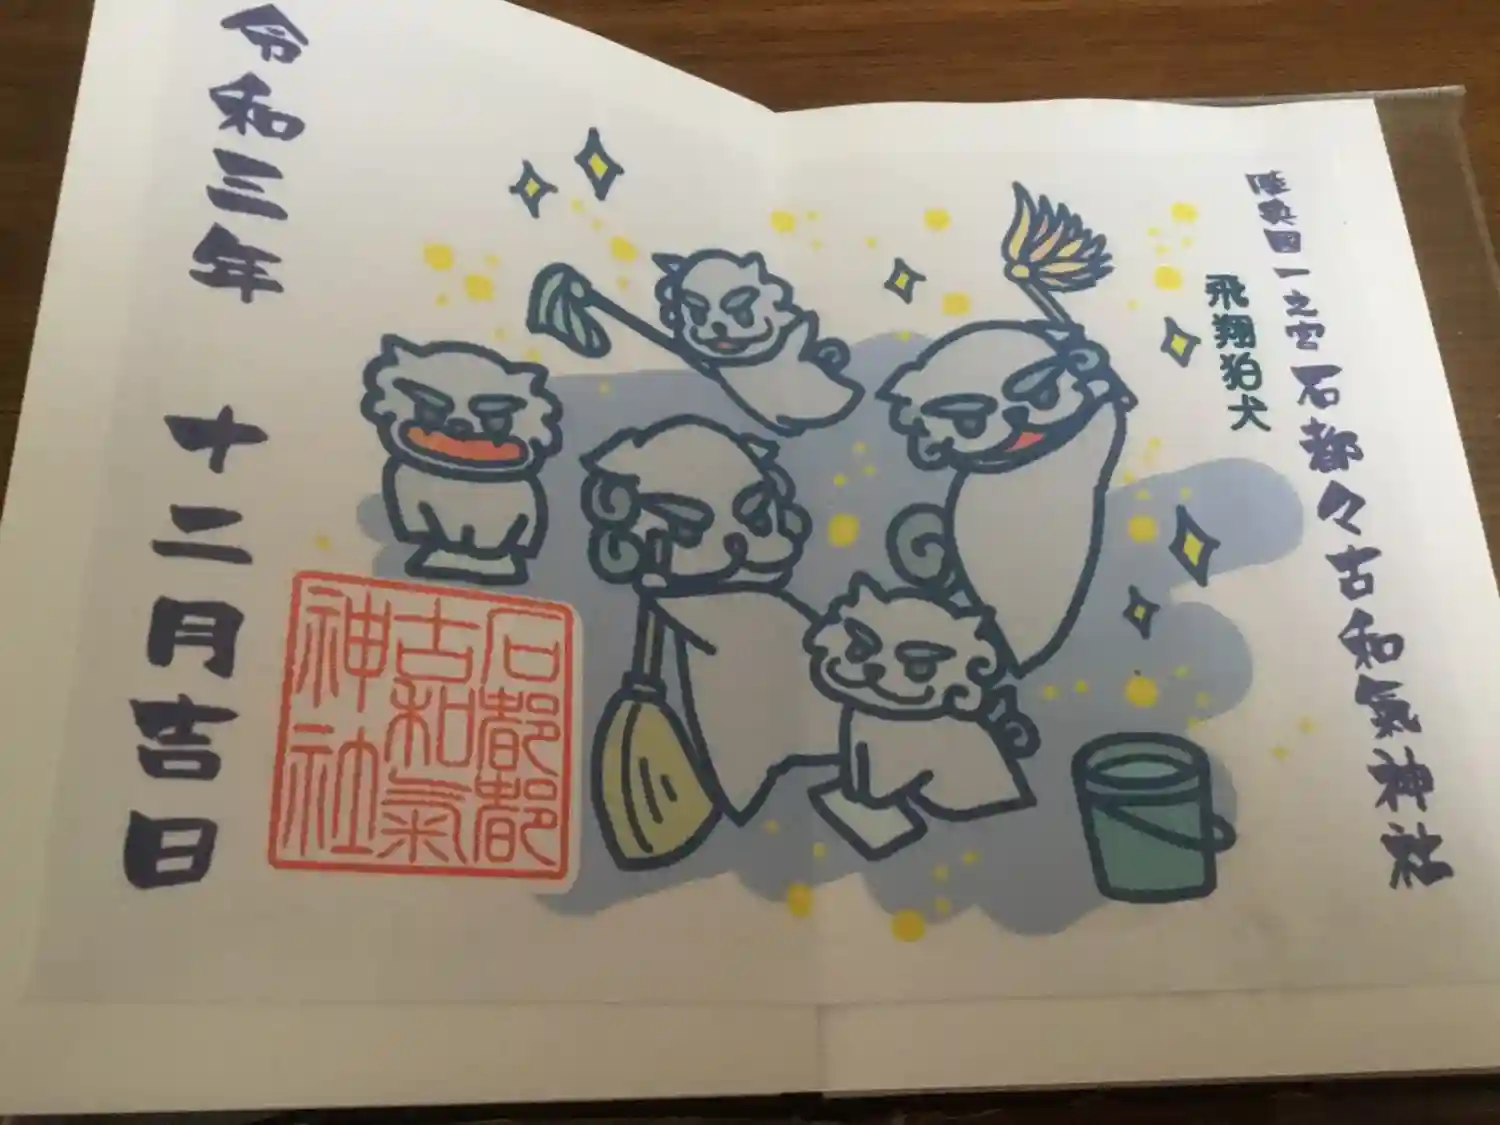 陸奥国一之宮 石都々古和氣神社
飛翔狛犬
石都都
古和氣
神社
令和三年 十二月吉日